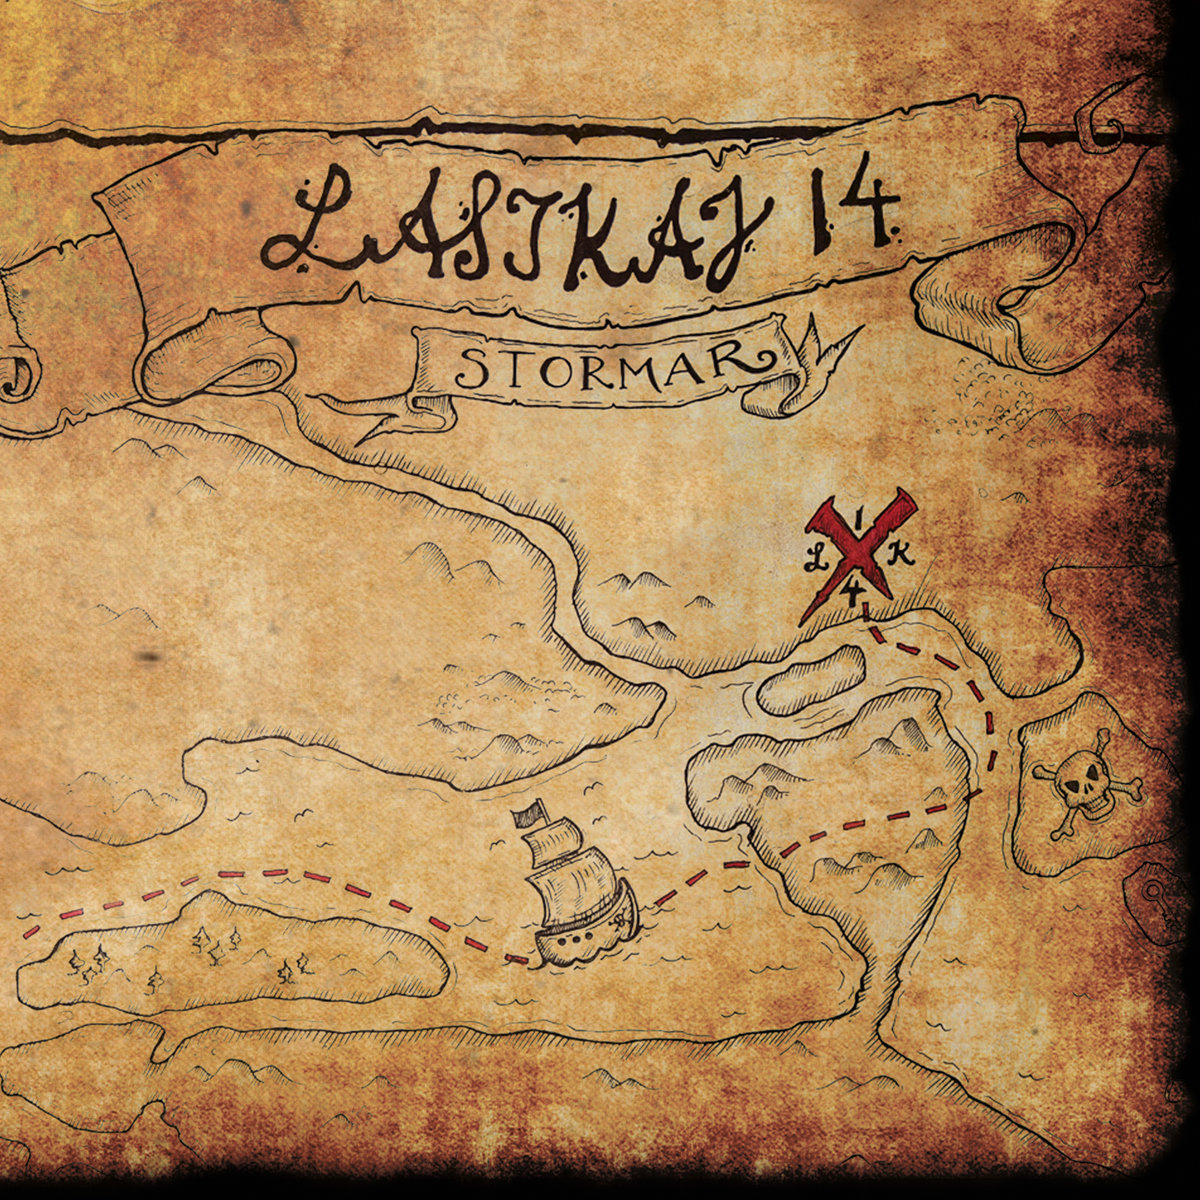 LASTKAJ 14
STORMAR
D
1
L K
4